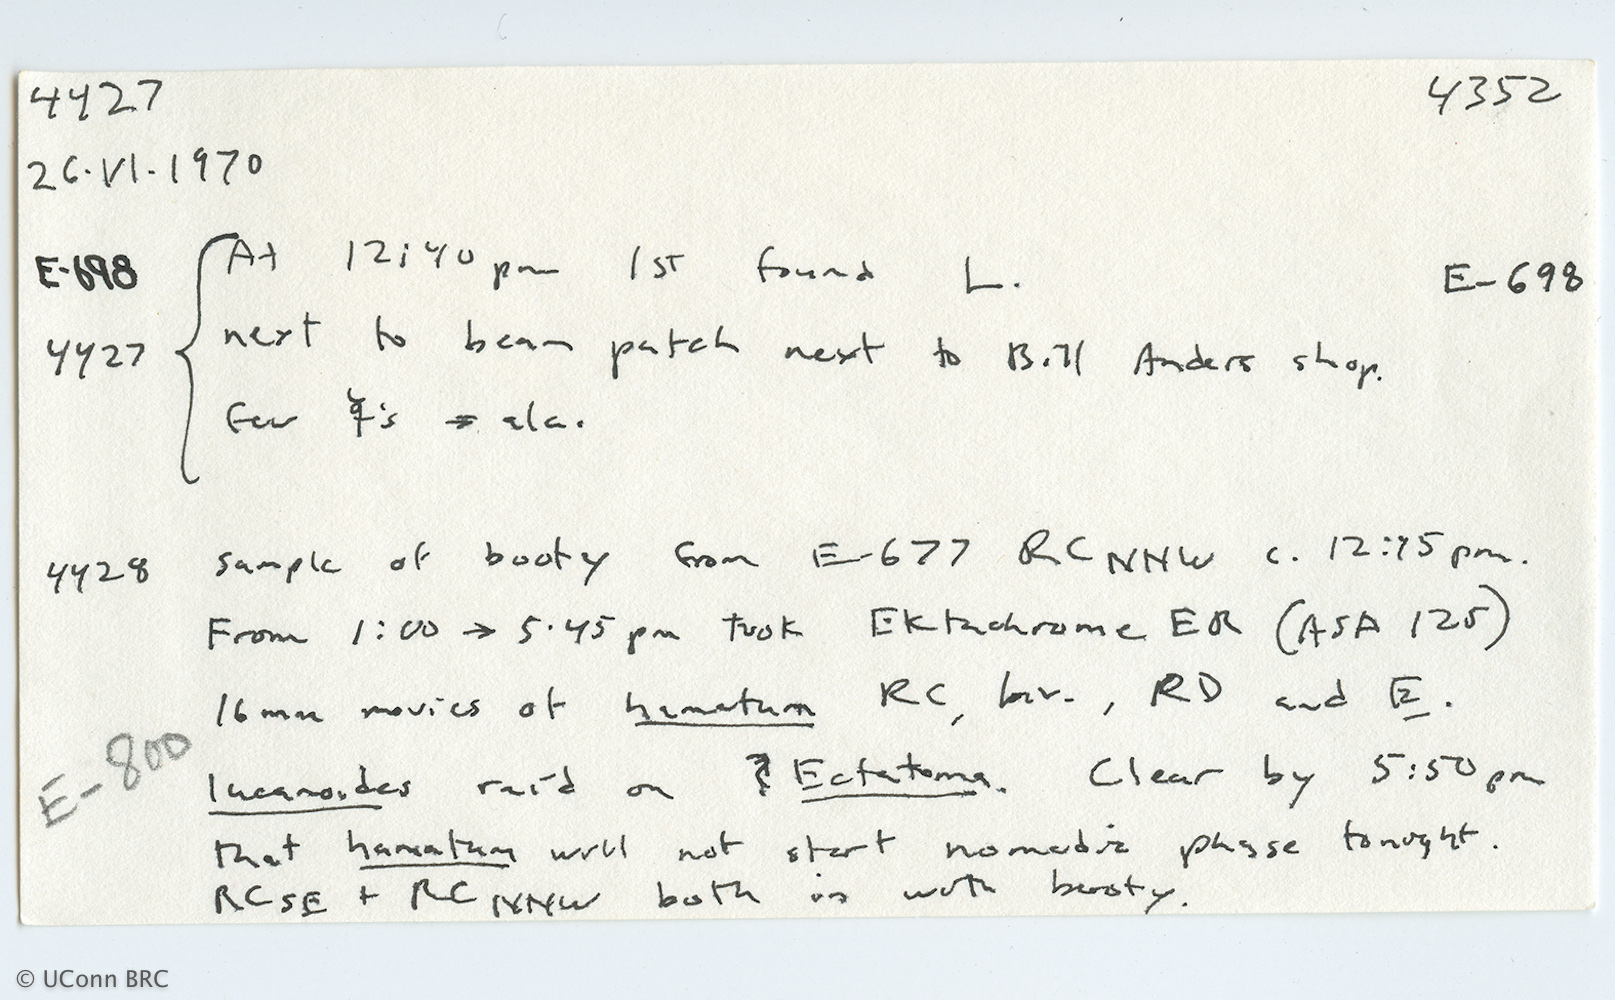 4427 4352
26.VI.1970
E-698 At 12:40 pm 1st found L. E-698
4427 next to bean patch next to Bill Anders shop.
Few ☿'s → ala.
4428 Sample of booty from E-677 RC NNW c. 12:45 pm.
From 1:00 → 5:45 pm took Ektachrome ER (ASA 125)
16mm movies of hamatum RC, biv., RD and E.
E-800 lucanoides raid on ? Ectatoma. Clear by 5:50 pm
that hamatum will not start nomadic phase tonight.
RC SE + RC NNW both in with booty.
© UConn BRC